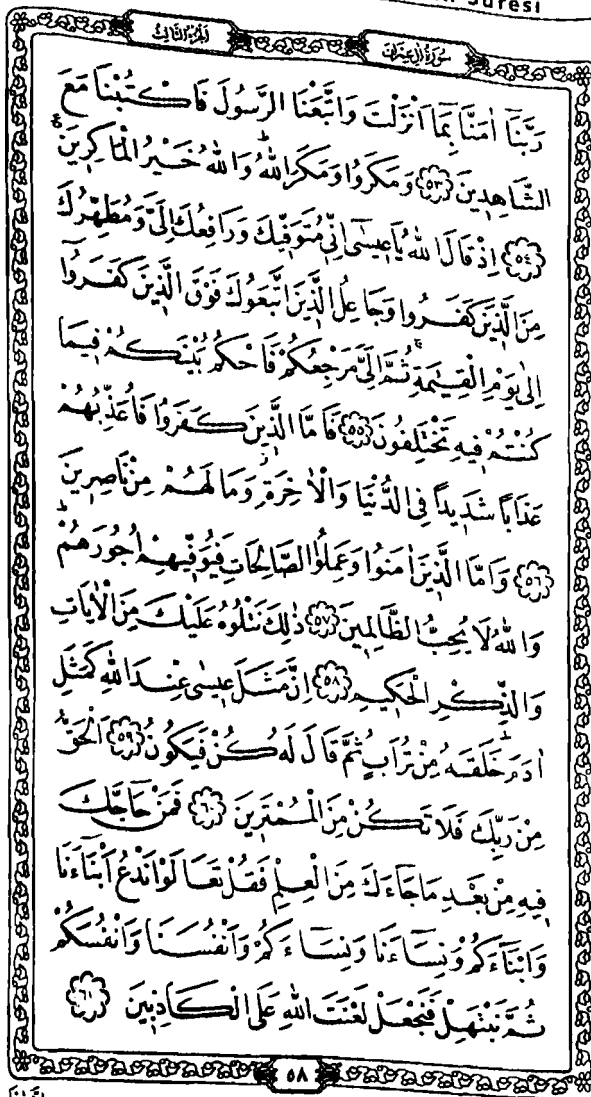 Suresi
سُورَةُ اٰلِ عِمْرٰنَ
اَلْجُزْءُ الثَّالِثُ
رَبَّنَٓا اٰمَنَّا بِمَٓا اَنْزَلْتَ وَاتَّبَعْنَا الرَّسُولَ فَاكْتُبْنَا مَعَ
الشَّاهِدٖينَ ﴿٥٣﴾ وَمَكَرُوا وَمَكَرَ اللّٰهُؕ وَاللّٰهُ خَيْرُ الْمَاكِرٖينَࣖ
﴿٥٤﴾ اِذْ قَالَ اللّٰهُ يَا عٖيسٰٓى اِنّٖي مُتَوَفّٖيكَ وَرَافِعُكَ اِلَيَّ وَمُطَهِّرُكَ
مِنَ الَّذٖينَ كَفَرُوا وَجَاعِلُ الَّذٖينَ اتَّبَعُوكَ فَوْقَ الَّذٖينَ كَفَرُٓوا
اِلٰى يَوْمِ الْقِيٰمَةِۚ ثُمَّ اِلَيَّ مَرْجِعُكُمْ فَاَحْكُمُ بَيْنَكُمْ فٖيمَا
كُنْتُمْ فٖيهِ تَخْتَلِفُونَ ﴿٥٥﴾ فَاَمَّا الَّذٖينَ كَفَرُوا فَاُعَذِّبُهُمْ
عَذَاباً شَدٖيداً فِي الدُّنْيَا وَالْاٰخِرَةِؗ وَمَا لَهُمْ مِنْ نَاصِرٖينَ
﴿٥٦﴾ وَاَمَّا الَّذٖينَ اٰمَنُوا وَعَمِلُوا الصَّالِحَاتِ فَيُوَفّٖيهِمْ اُجُورَهُمْؕ
وَاللّٰهُ لَا يُحِبُّ الظَّالِمٖينَ ﴿٥٧﴾ ذٰلِكَ نَتْلُوهُ عَلَيْكَ مِنَ الْاٰيَاتِ
وَالذِّكْرِ الْحَكٖيمِ ﴿٥٨﴾ اِنَّ مَثَلَ عٖيسٰى عِنْدَ اللّٰهِ كَمَثَلِ
اٰدَمَؕ خَلَقَهُ مِنْ تُرَابٍ ثُمَّ قَالَ لَهُ كُنْ فَيَكُونُ ﴿٥٩﴾ اَلْحَقُّ
مِنْ رَبِّكَ فَلَا تَكُنْ مِنَ الْمُمْتَرٖينَ ﴿٦٠﴾ فَمَنْ حَٓاجَّكَ
فٖيهِ مِنْ بَعْدِ مَا جَٓاءَكَ مِنَ الْعِلْمِ فَقُلْ تَعَالَوْا نَدْعُ اَبْنَٓاءَنَا
وَاَبْنَٓاءَكُمْ وَنِسَٓاءَنَا وَنِسَٓاءَكُمْ وَاَنْفُسَنَا وَاَنْفُسَكُمْ
ثُمَّ نَبْتَهِلْ فَنَجْعَلْ لَعْنَتَ اللّٰهِ عَلَى الْكَاذِبٖينَ ﴿٦١﴾
٥٨